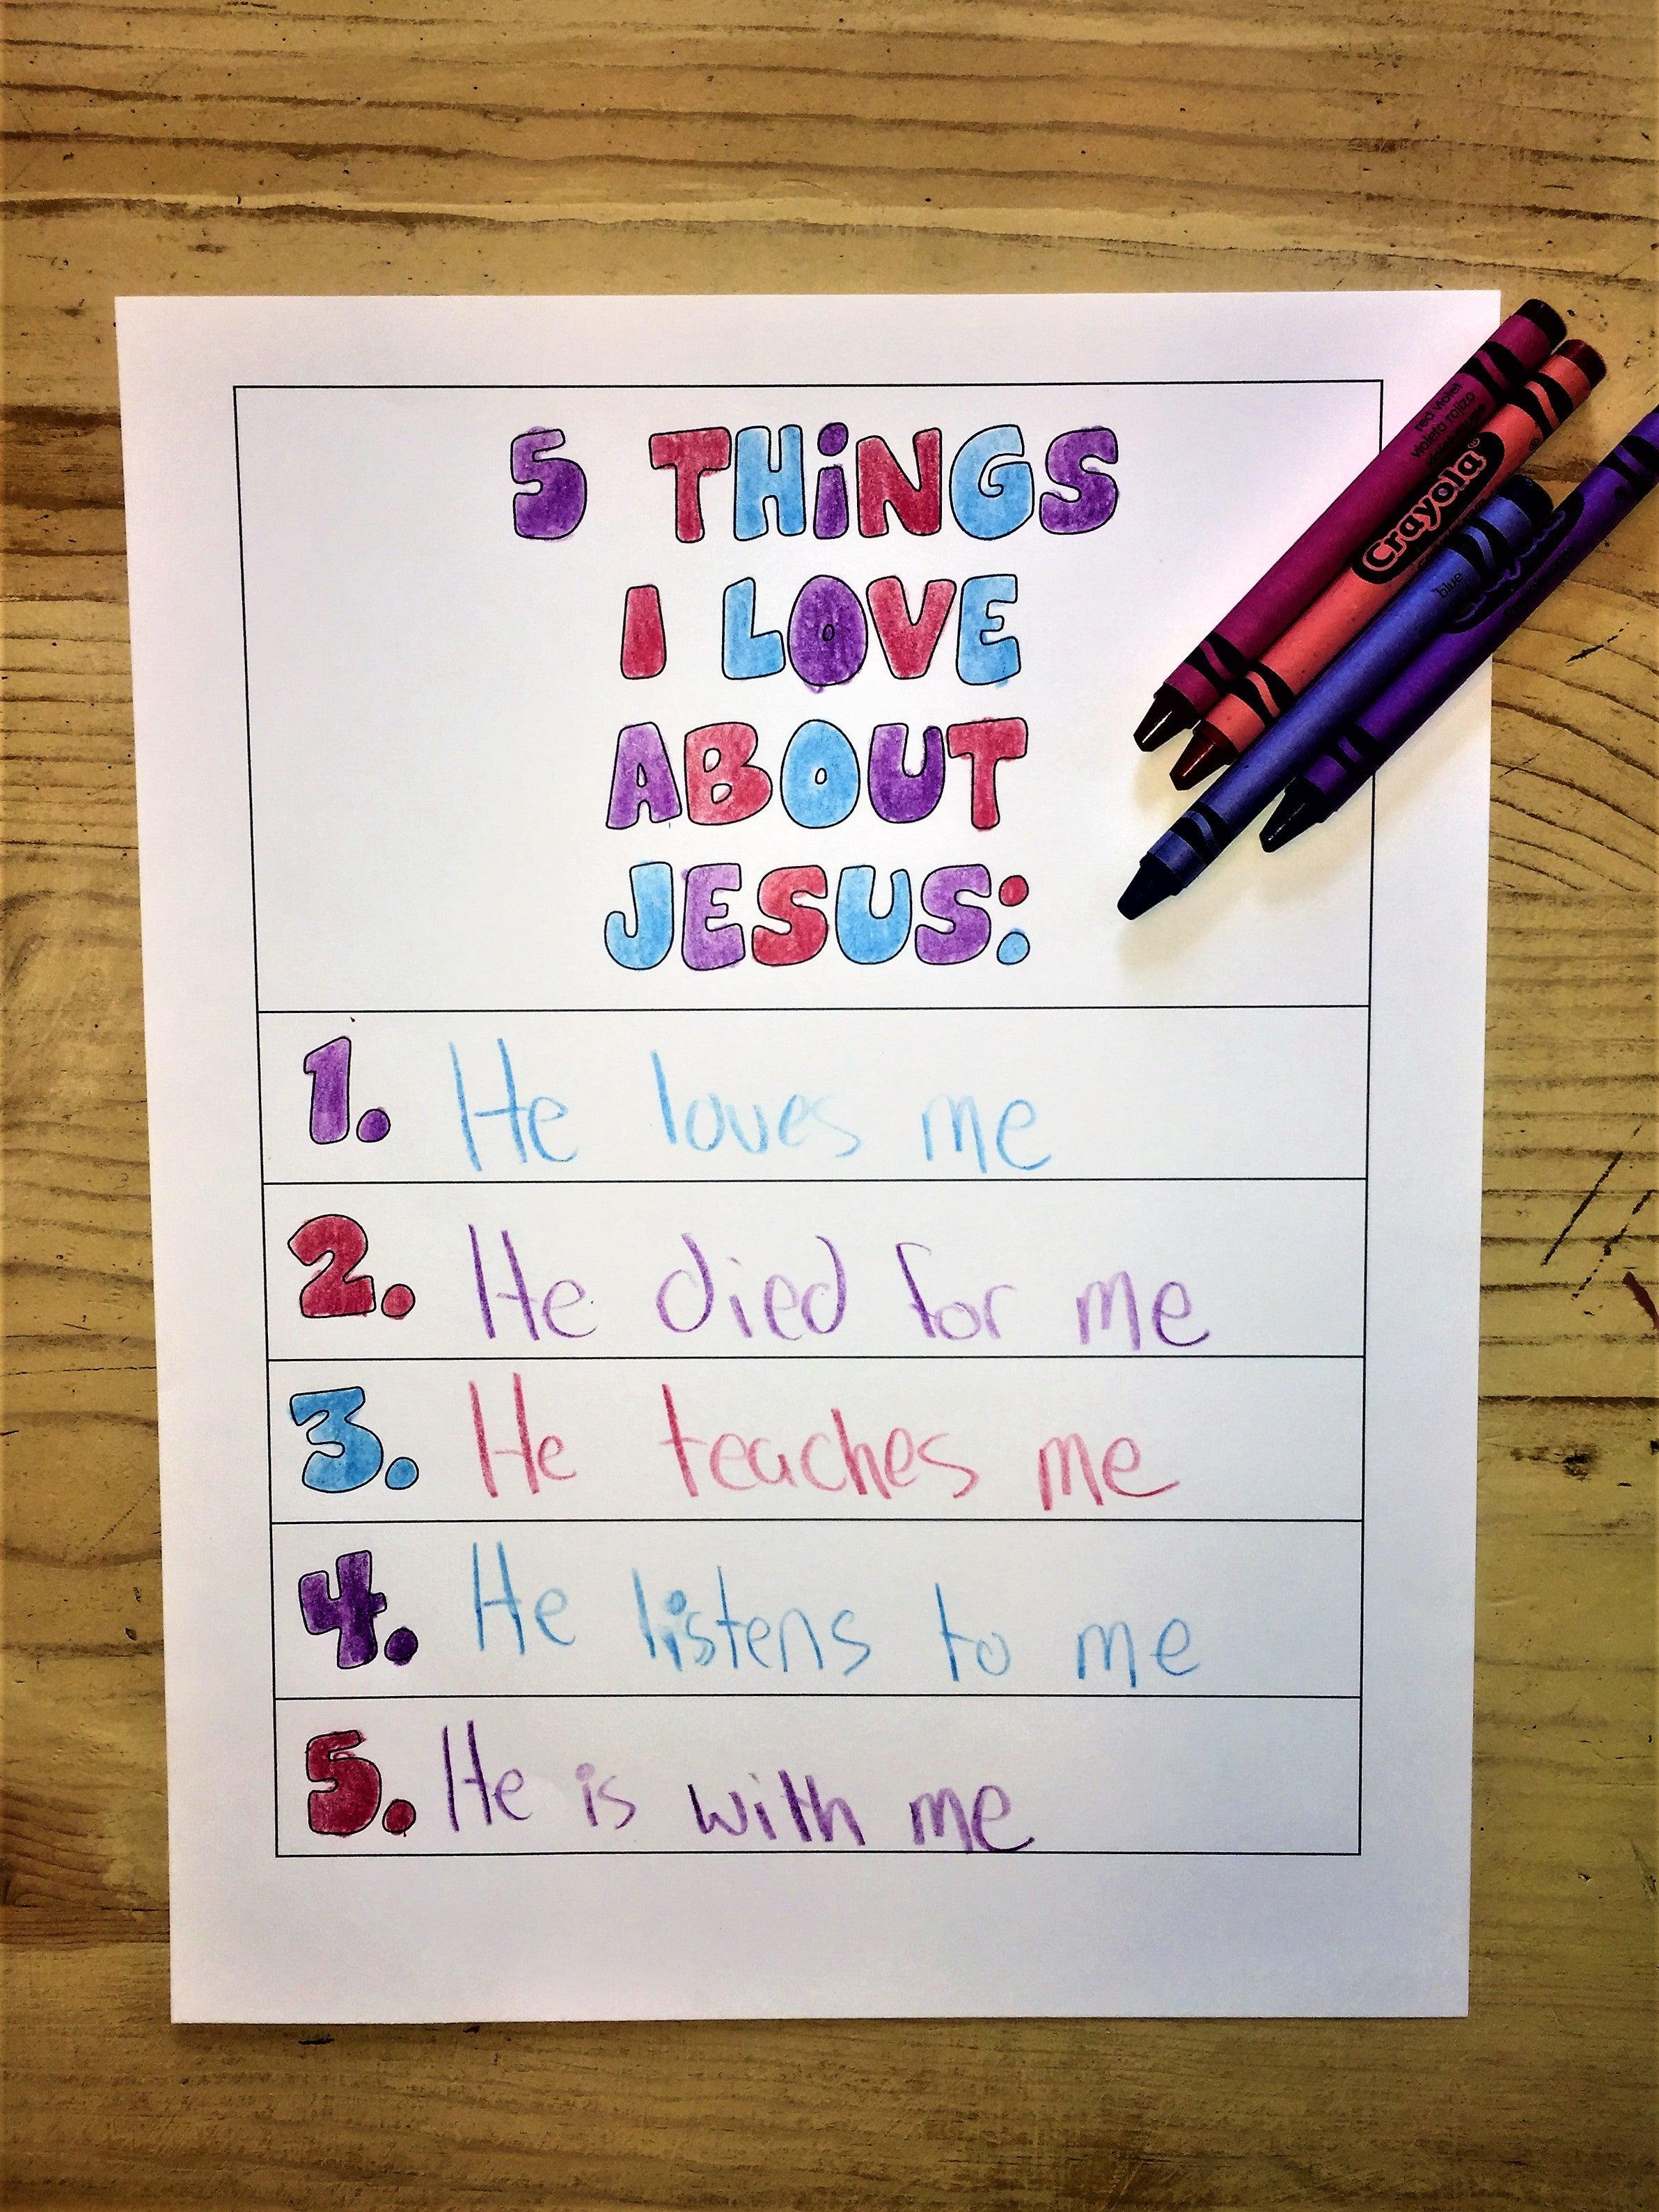 5 THiNGS
I LOVE
ABOUT
JESUS:
1. He loves me
2. He died for me
3. He teaches me
4. He listens to me
5. He is with me
red violet
violeta rojizo
Crayola®
blue